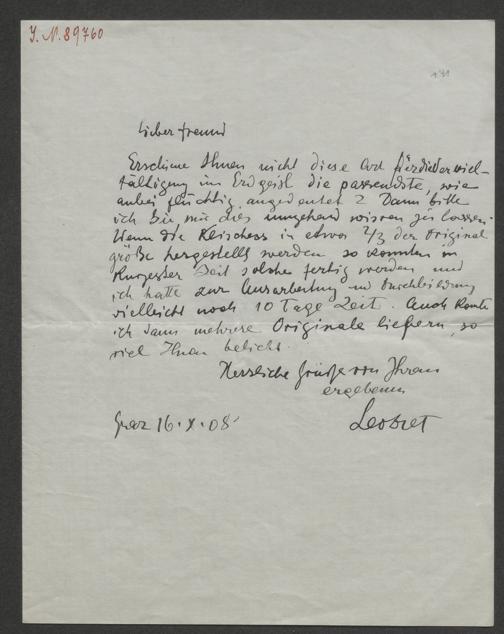 J.N. 89760
Lieber Freund
Erschiene Ihnen nicht diese Art für die Verviel-
fältigung im die passendste, wie
anbei flüchtig angedeutet? Dann bitte
ich Sie mir dies umgehend wissen zu lassen.
Wenn die in etwa 2/3 der Original
größe hergestellt werden so könnten in
kürzester Zeit solche fertig werden und
ich hätte zur Ausarbeitung und
vielleicht noch 10 Tage Zeit. Auch könnte
ich dann mehrere Originale liefern, so
viel Ihnen beliebt.
Herzliche Grüße von Ihrem
ergebenen
Graz 16.X.08